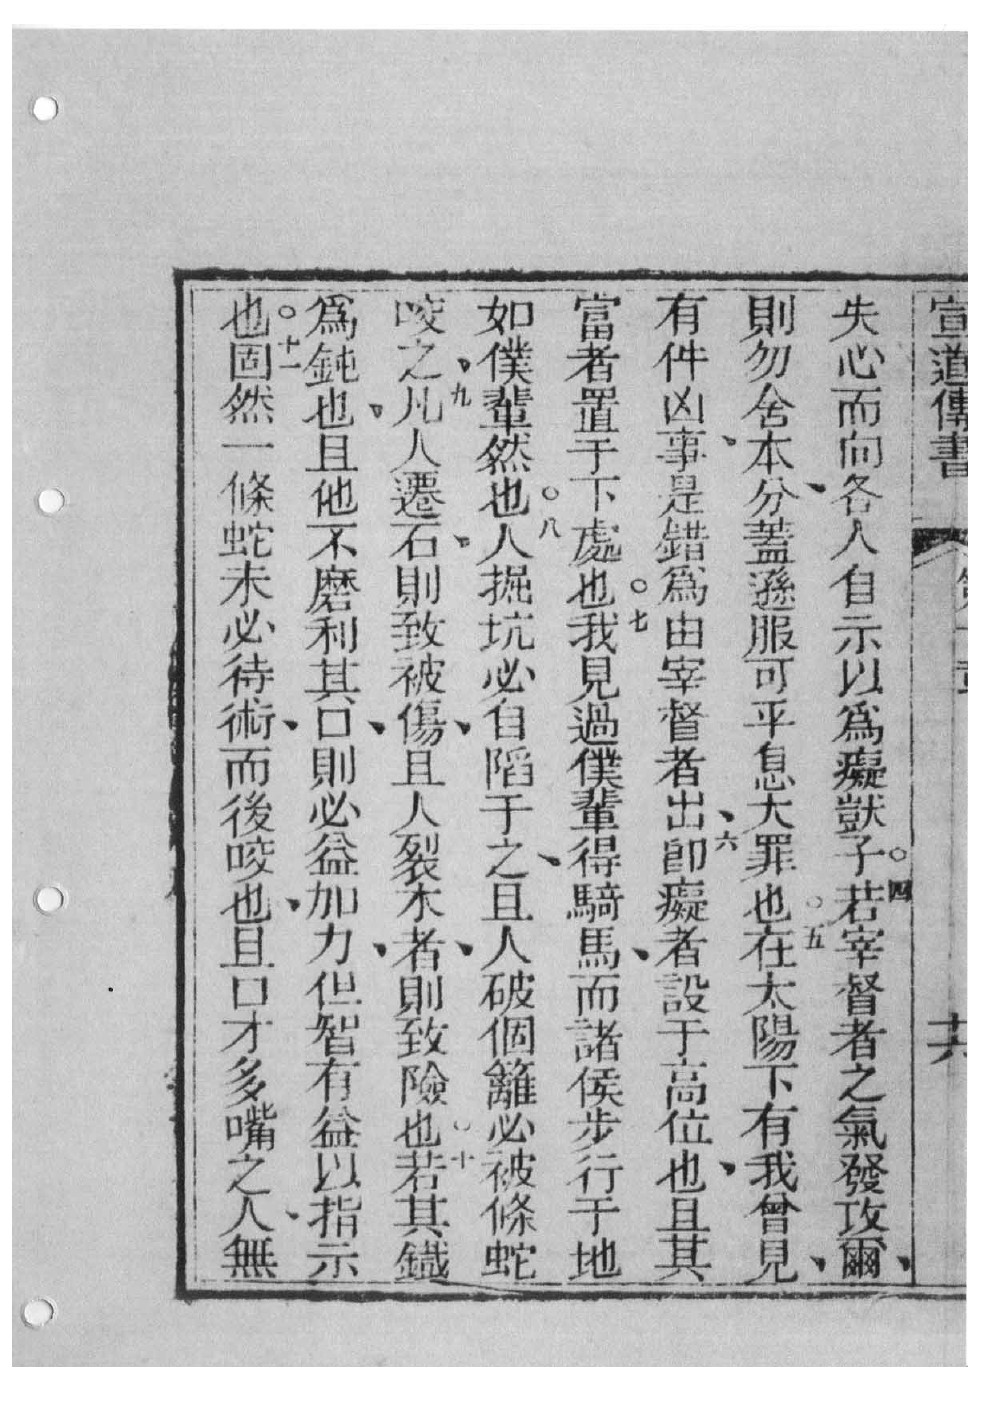 宣道傳書 第十章 十六
失心而向各人自示以爲癡獃子○四若宰督者之氣發攻爾、
則勿舍本分、蓋遜服可平息大罪也○五在太陽下有我曾見、
有件凶事、是錯爲由宰督者出、六卽癡者設于高位也、且其
富者置于下處也○七我見過僕輩得騎馬、而諸侯步行于地
如僕輩然也○八人掘坑必自陷于之、且人破個籬必被條蛇
咬之、九凡人遷石、則致被傷、且人裂木者、則致險也○十若其鐵
爲鈍也、且他不磨利其口、則必益加力、但智有益以指示
也○十一固然一條蛇未必待術、而後咬也、且口才多嘴之人、無